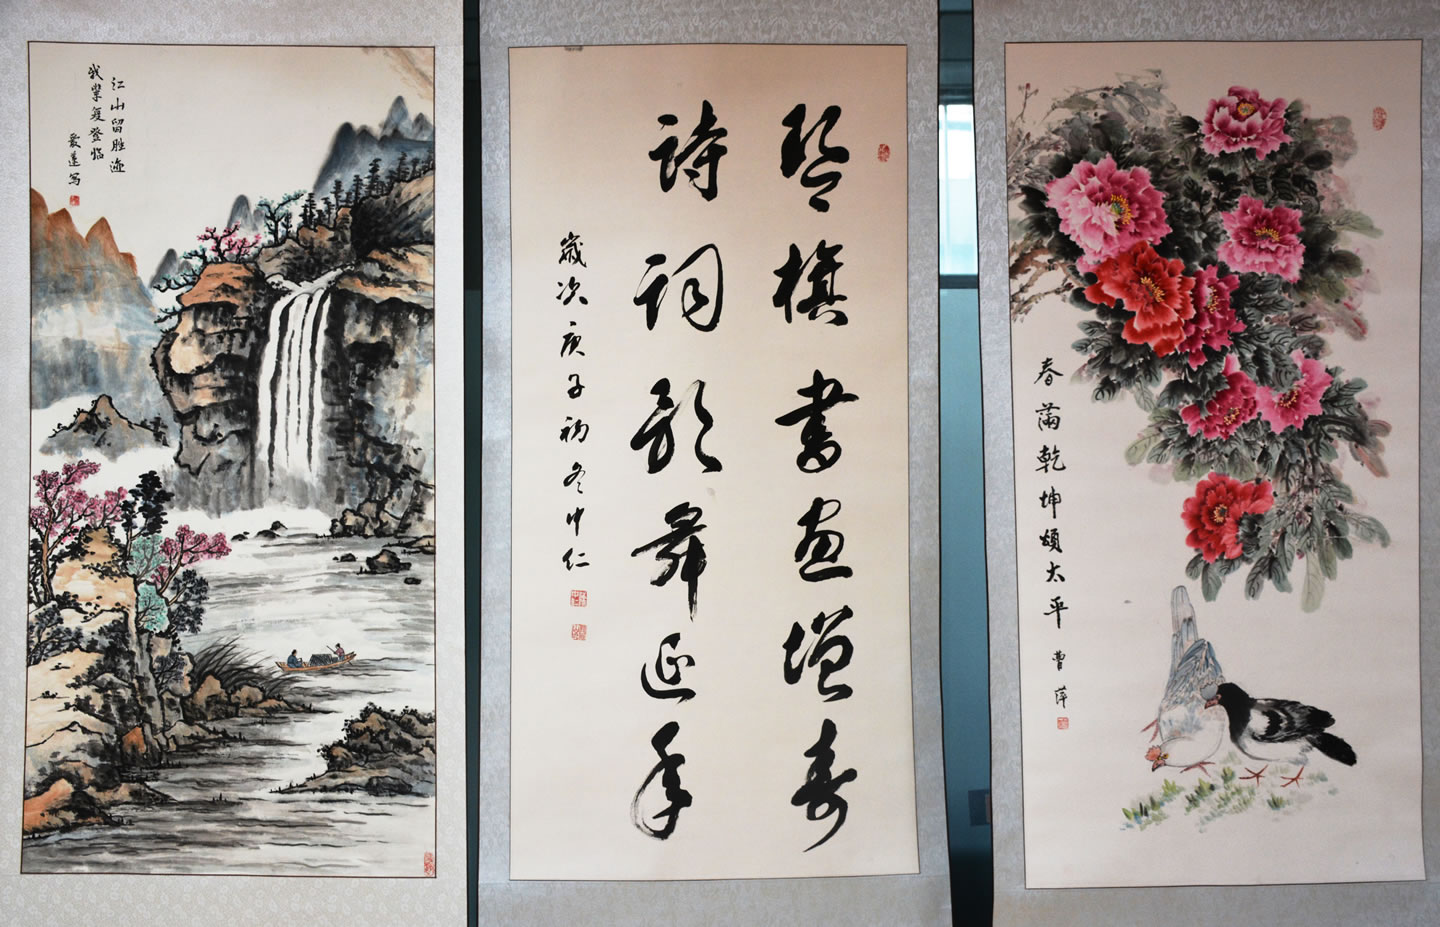 江山留胜迹
我辈复登临
爱莲写
琴棋書画增寿
詩詞歌舞延年
歲次庚子初冬中仁
春满乾坤頌太平
曹萍